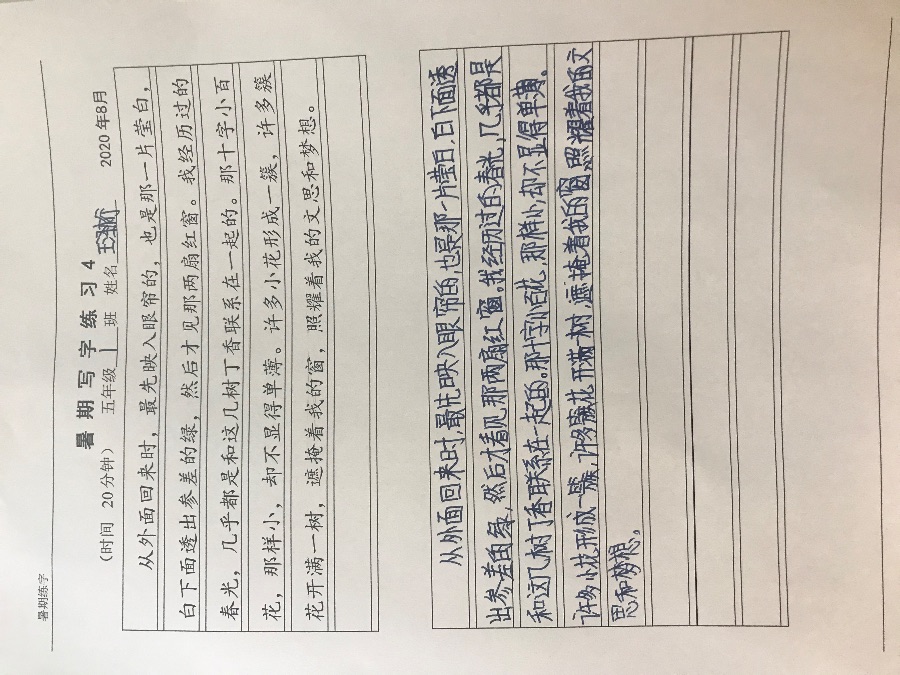 暑期练字
暑期写字练习4
(时间 20分钟) 五年级1班 姓名 2020年8月
从外面回来时，最先映入眼帘的，也是那一片莹白，
白下面透出参差的绿，然后才见那两扇红窗。我经历过的
春光，几乎都是和这几树丁香联系在一起的。那十字小百
花，那样小，却不显得单薄。许多小花形成一簇，许多簇
花开满一树，遮掩着我的窗，照耀着我的文思和梦想。
从外面回来时，最先映入眼帘的，也是那一片莹白，白下面透
出参差的绿，然后才看见那两扇红窗。我经历过的春光，几乎都是
和这几树丁香联系在一起的。那十字小百花，那样小，却不显得单薄。
许多小花形成一簇，许多簇花开满一树，遮掩着我的窗，照耀着我的文
思和梦想。